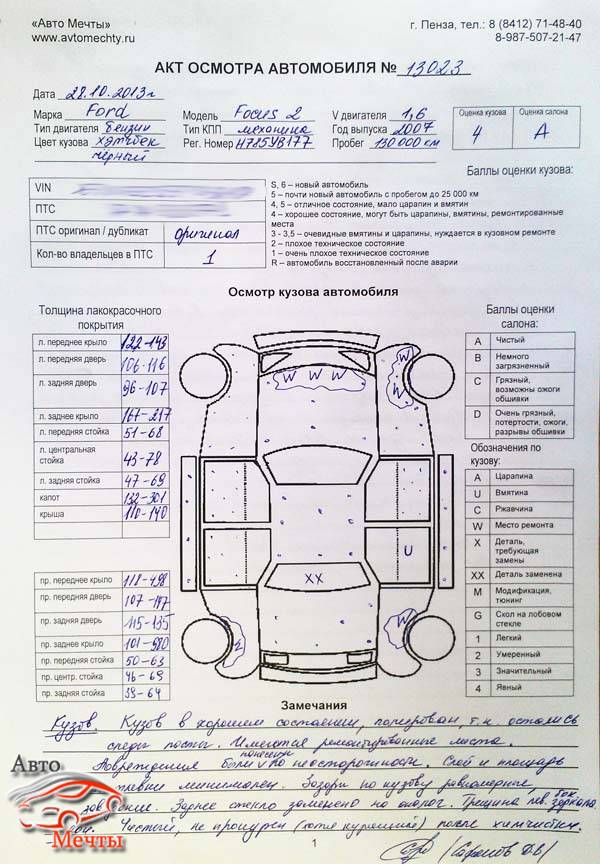 «Авто Мечты»
www.avtomechty.ru
г. Пенза, тел.: 8 (8412) 71-48-40
8-987-507-21-47
АКТ ОСМОТРА АВТОМОБИЛЯ № 13023
Дата 28.10.2013г
Марка Ford Модель Focus 2 V двигателя 1,6
Тип двигателя бензин Тип КПП механика Год выпуска 2007
Цвет кузова хэтчбек Рег. Номер Н785УВ177 Пробег 130000 км
чёрный
Оценка кузова Оценка салона
4 А
VIN
ПТС
ПТС оригинал / дубликат оригинал
Кол-во владельцев в ПТС 1
Баллы оценки кузова:
S, 6 – новый автомобиль
5 – почти новый автомобиль с пробегом до 25 000 км
4, 5 – отличное состояние, мало царапин и вмятин
4 – хорошее состояние, могут быть царапины, вмятины, ремонтированные
места
3 - 3,5 – очевидные вмятины и царапины, нуждается в кузовном ремонте
2 – плохое техническое состояние
1 – очень плохое техническое состояние
R – автомобиль восстановленный после аварии
Осмотр кузова автомобиля
Толщина лакокрасочного
покрытия
л. переднее крыло 122-143
л. передняя дверь 106-116
л. задняя дверь 96-107
л. заднее крыло 167-217
л. передняя стойка 51-68
л. центральная
стойка 43-78
л. задняя стойка 47-69
капот 132-301
крыша 110-140
пр. переднее крыло 118-498
пр. передняя дверь 107-147
пр. задняя дверь 115-135
пр. заднее крыло 101-580
пр. передняя стойка 50-63
пр. центр. стойка 46-69
пр. задняя стойка 39-64
W W W
W
U
XX
W
2
Баллы оценки
салона:
A Чистый
B Немного
загрязненный
C Грязный,
возможны ожоги
обшивки
D Очень грязный,
потертости, ожоги,
разрывы обшивки
Обозначения по
кузову:
A Царапина
U Вмятина
C Ржавчина
W Место ремонта
X Деталь,
требующая
замены
XX Деталь заменена
M Модификация,
тюнинг
G Скол на лобовом
стекле
1 Легкий
2 Умеренный
3 Значительный
4 Явный
Замечания
Кузов. Кузов в хорошем состоянии, полирован, т.к. остались
следы пасты. Имеются ремонтированные места.
Повреждения были нанесены по неосторожности. Слой и площадь
минимален. Зазоры по кузову равномерные,
Заднее стекло заменено на аналог. Трещина лев. бок. зеркала
Чистый, не прокурен (хотя курящий) после химчистки.
Авто
Мечты
1